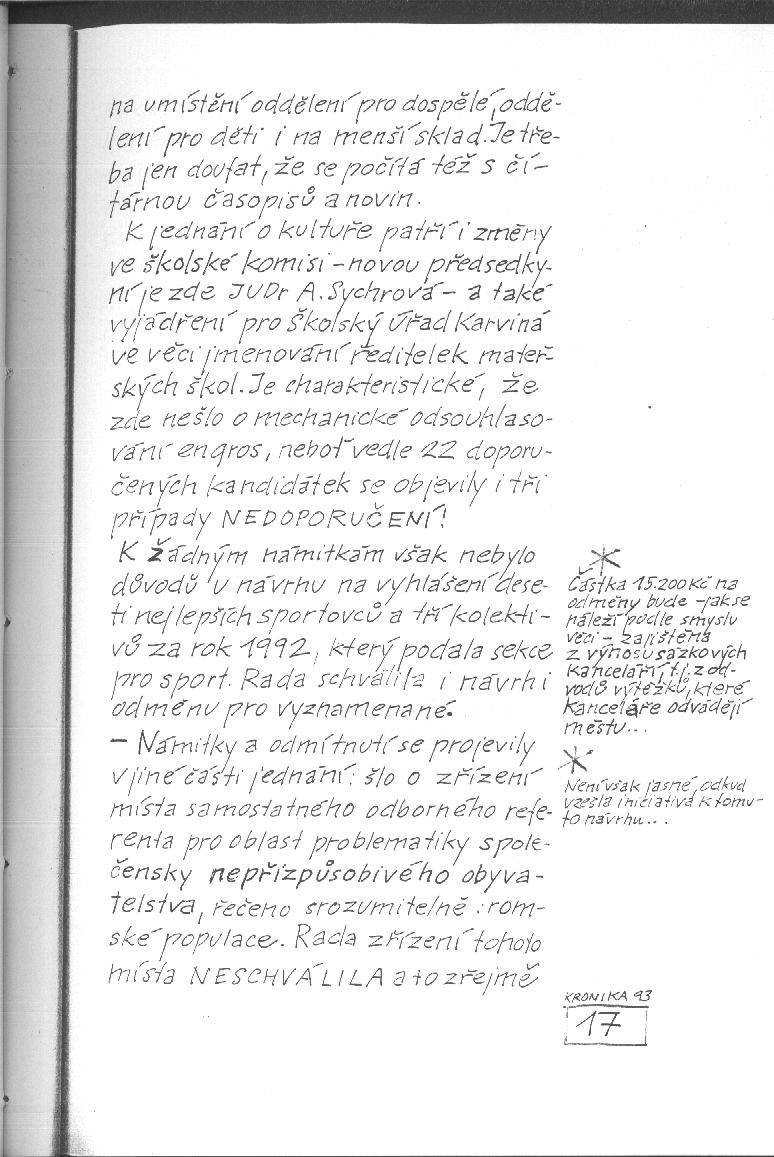 na umístění oddělení pro dospělé, oddě-
lení pro děti i na menší sklad. Je tře-
ba jen doufat, že se počítá též s čí-
tárnou časopisů a novin.
K jednání o kultuře patří i změny
ve školské komisi - novou předsedky-
ní je zde JUDr A. Sychrová - a také
vyjádření pro Školský Úřad Karviná
ve věci jmenování ředitelek mateř-
ských škol. Je charakteristické, že
zde nešlo o mechanické odsouhlaso-
vání engros, neboť vedle 22 doporu-
čených kandidátek se objevily i tři
případy NEDOPORUČENÍ!
K žádným námitkám však nebylo
důvodů u návrhu na vyhlášení dese-
ti nejlepších sportovců a tří kolekti-
vů za rok 1992, který podala sekce
pro sport. Rada schválila i návrh i
odměnu pro vyznamenané.
- Námitky a odmítnutí se projevily
v jiné části jednání: šlo o zřízení
místa samostatného odborného refe-
renta pro oblast problematiky spole-
čensky nepřizpůsobivého obyva-
telstva, řečeno srozumitelně: rom-
ské populace. Rada zřízení tohoto
místa NESCHVÁLILA a to zřejmě
Částka 15.200 Kč na
odměny bude - jak se
náleží podle smyslu
věci - zajištěna
z výnosu sázkových
kanceláří, t.j. z od-
vodů výtěžků, které
kanceláře odvádějí
městu...
Není však jasné, odkud
vzešla iniciativa k tomu-
to návrhu...
KRONIKA 93
17